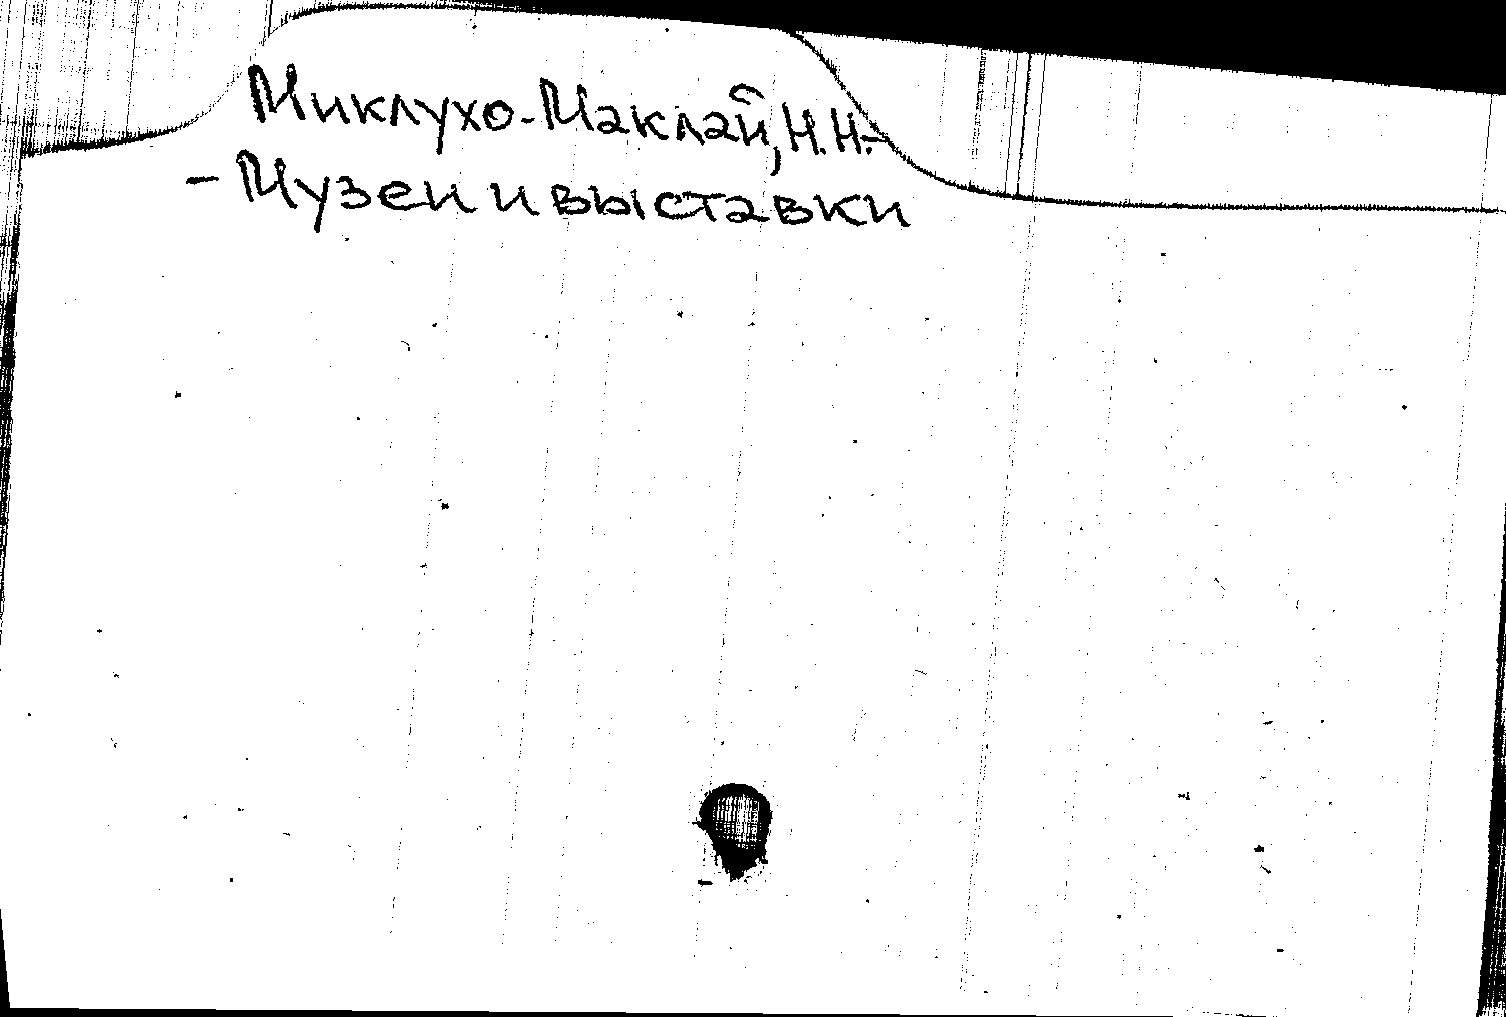 Миклухо-Маклай, Н.Н.-
- Музеи и выставки